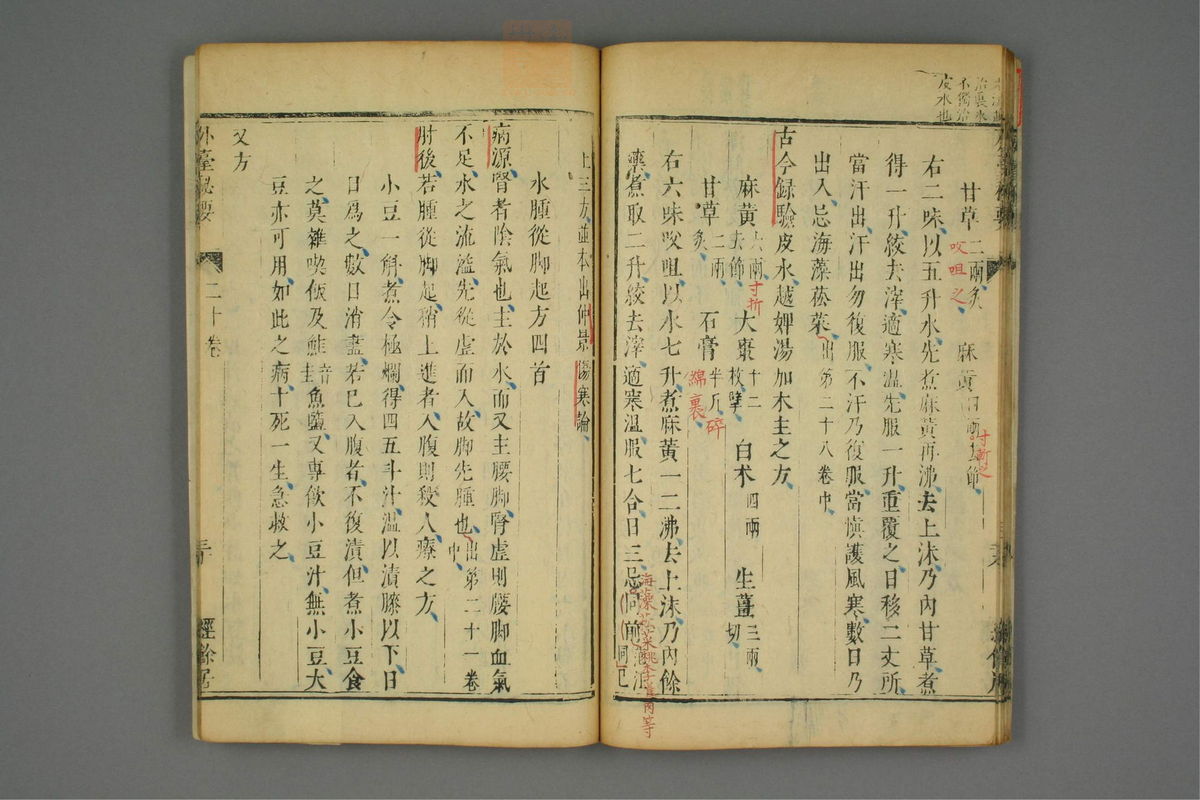 治裏水
不獨治
皮水也
甘草二兩炙 麻黃四兩去節
㕮咀之
寸折之
右二味以五升水先煮麻黃再沸去上沫乃內甘草煮
得一升絞去滓適寒溫先服一升重覆之日移二丈所
當汗出汗出勿復服不汗乃復服當慎護風寒數日乃
出入忌海藻菘菜出第二十八卷中
古今録驗皮水越婢湯加术主之方
麻黃六兩去節 大棗十二枚擘 白术四兩 生薑三兩切
寸折
甘草二兩炙 石膏半斤
碎綿裹
右六味㕮咀以水七升煮麻黃一二沸去上沫乃內餘
藥煮取二升絞去滓適寒溫服七合日三忌同前
海藻菘菜桃李雀肉等
上三方並本出仲景傷寒論
水腫從脚起方四首
病源腎者陰氣也主於水而又主腰脚腎虛則腰脚血氣
不足水之流溢先從虛而入故脚先腫也出第二十一卷中
肘後若腫從脚起稍上進者入腹則殺人療之方
小豆一斛煮令極爛得四五斗汁溫以漬膝以下日
日爲之數日消盡若已入腹者不復漬但煮小豆食
之莫雜喫飯及鮭音圭魚鹽又專飲小豆汁無小豆大
豆亦可用如此之病十死一生急救之
又方
外臺秘要 二十卷 三十 經餘居